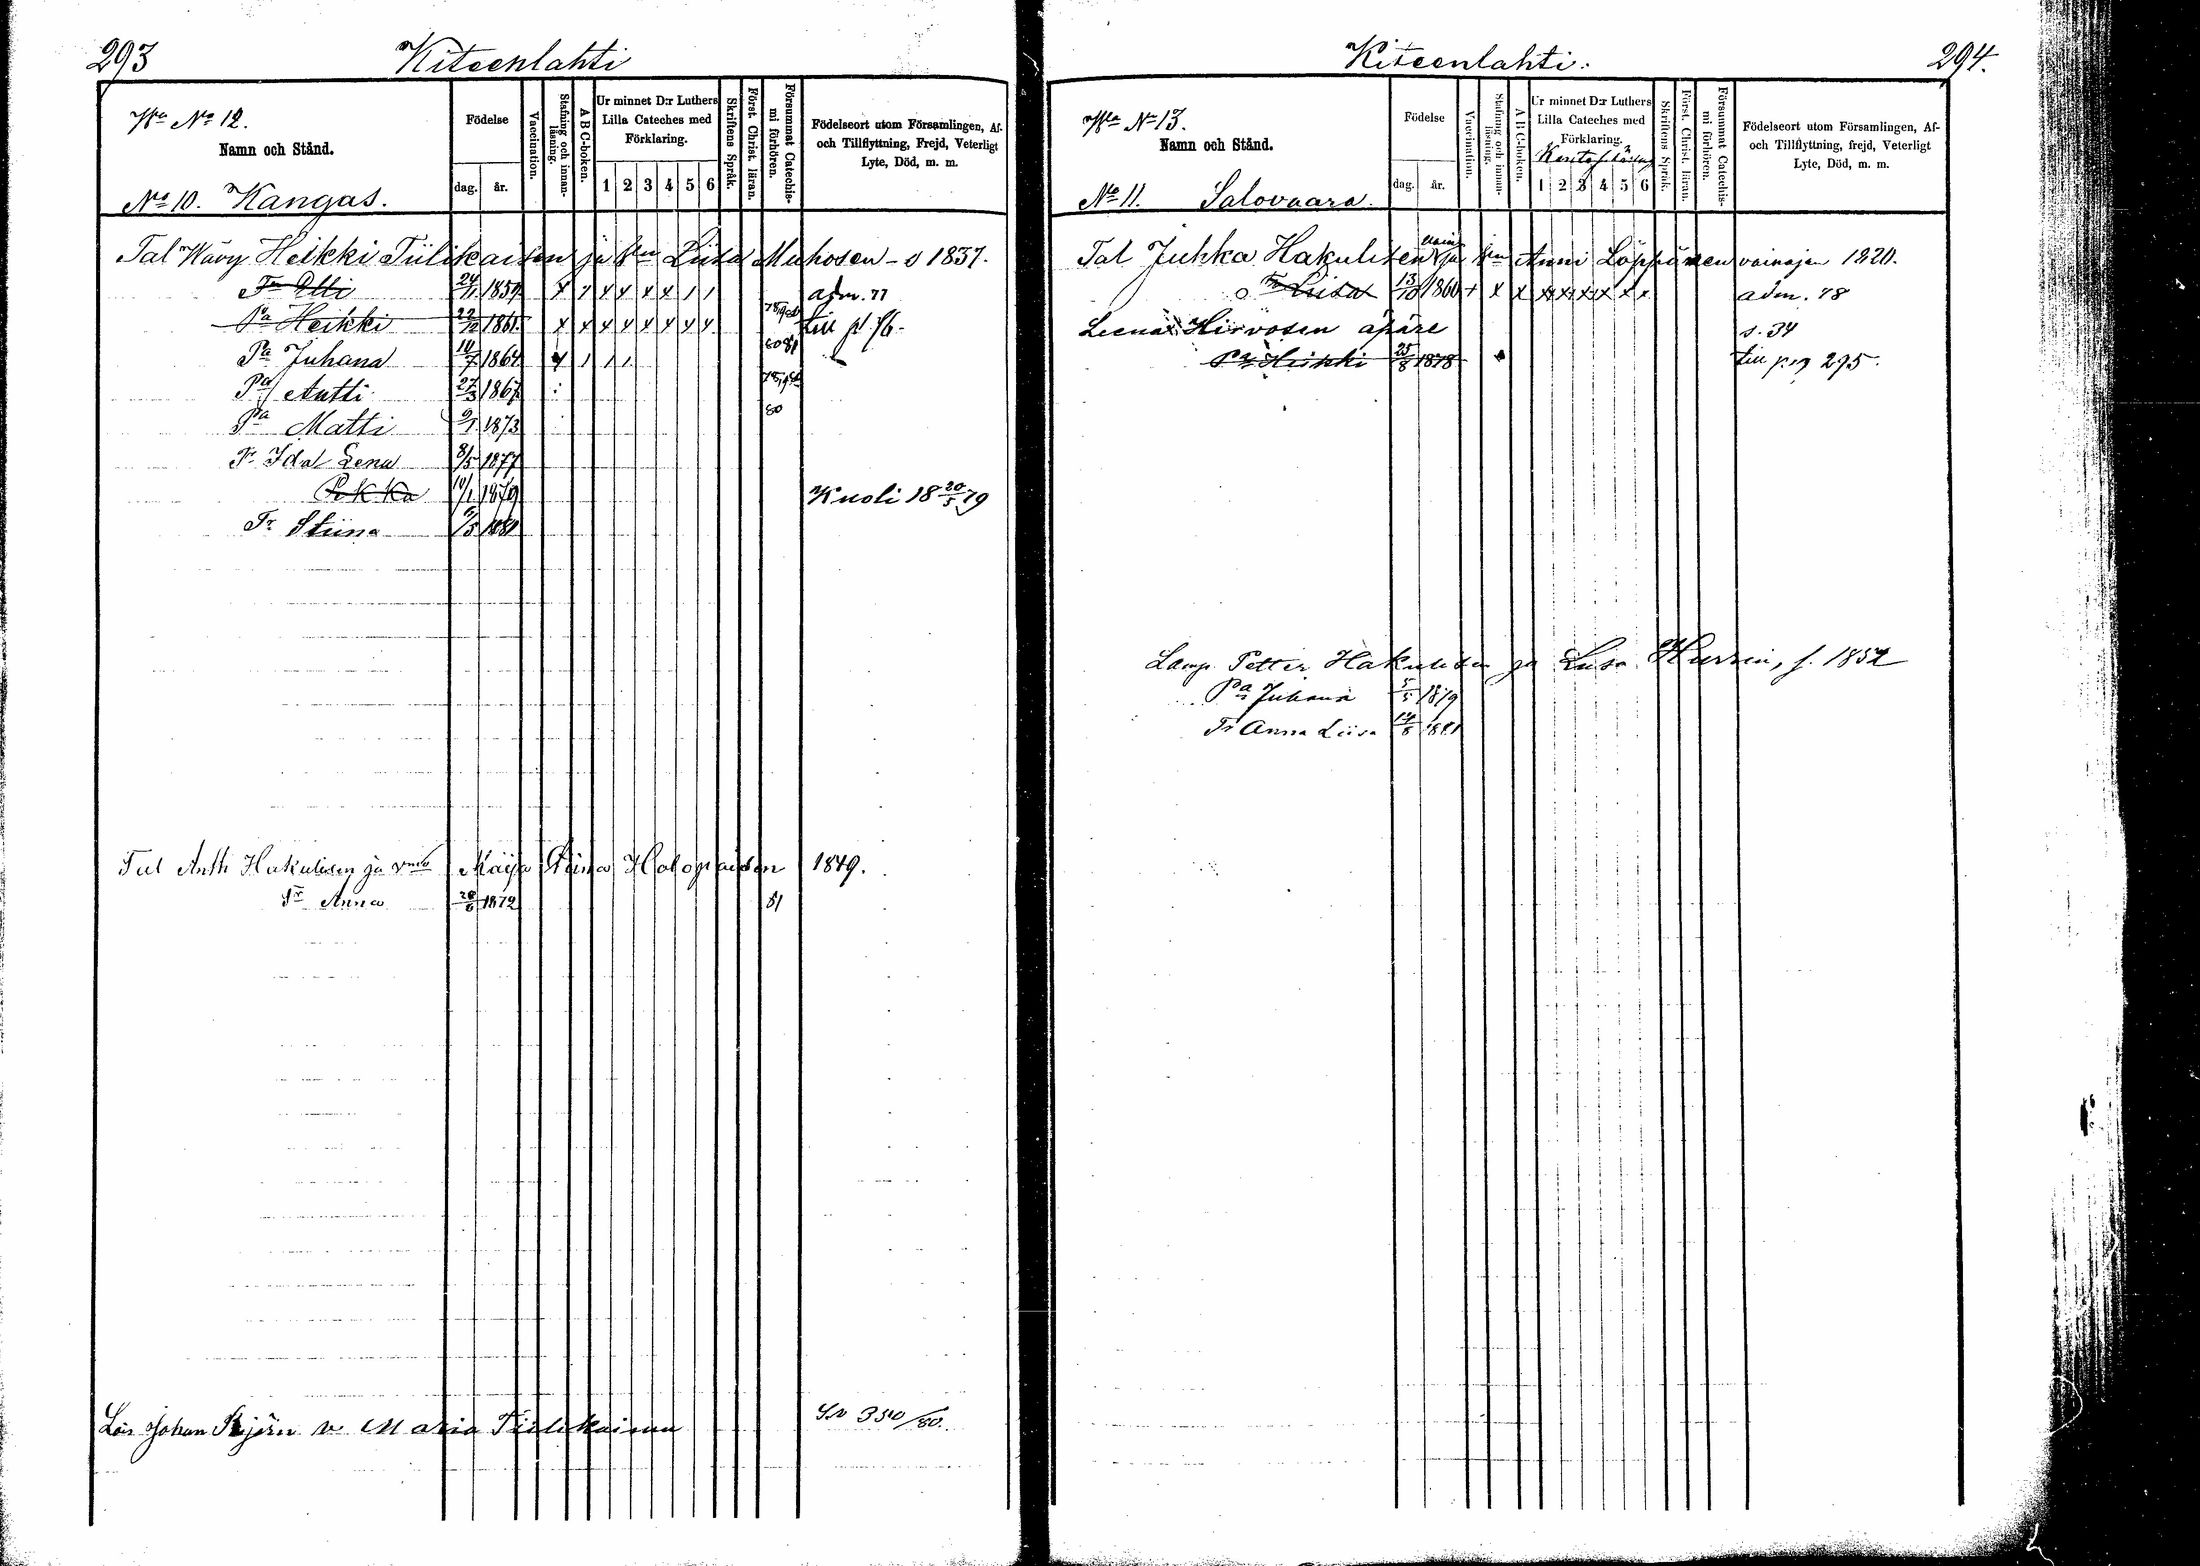 293
Kiteenlahti
Wa No 12.
Namn och Stånd.
No 10. Kangas.
Födelse
dag. år.
Vaccination.
Stafning och innanläsning.
A B C-boken.
Ur minnet D:r Luthers Lilla Cateches med Förklaring.
1 2 3 4 5 6
Skriftens Språk.
Först. Christ. läran.
Försummat Catechismi förhören.
Födelseort utom Församlingen, Af- och Tillflyttning, Frejd, Veterligt Lyte, Död, m. m.
Tal Wävy Heikki Tiilikaisen ja Liisa Muhosen - s 1837.
Tr Elli 24/11 1859 x 1 x x x x 1 1 adm. 77
Pa Heikki 22/12 1861 x x x x x x x x till pl 76.
Pa Juhana 10/7 1864 x 1 1 1 80 81
Pa Antti 27/3 1867
Pa Matti 9/1 1873 80
Tr Ida Lena 8/5 1877
Pekka 10/1 1879 Kuoli 18 20/5 79
Tr Stiina 1/5 1881
Tal Antti Hakulisen ja vmo Maija Stiina Holopaisen 1849.
Tr Anna 28/6 1872 81
Lois Johan v. Maria Tiilikainen 350/80.
Kiteenlahti.
294.
Wa No 13.
Namn och Stånd.
No 11. Salovaara.
Födelse
dag. år.
Vaccination.
Stafning och innanläsning.
A B C-boken.
Ur minnet D:r Luthers Lilla Cateches med Förklaring.
1 2 3 4 5 6
Skriftens Språk.
Först. Christ. läran.
Försummat Catechismi förhören.
Födelseort utom Församlingen, Af- och Tillflyttning, frejd, Veterligt Lyte, Död, m. m.
Tal Juhka Hakulisen ja Anni Löppösen vainajan 1820.
Tr Liisa 13/10 1860 + x x x x x x x x adm. 78
Leena Hirvosen äpäre s. 34
Pa Heikki 25/8 1878 till pag 295.
Lamp. Petter Hakulisen ja Liisa Hurrin, s. 1852
Pa Juhana 5/5 1879
Tr Anna Liisa 14/8 1881